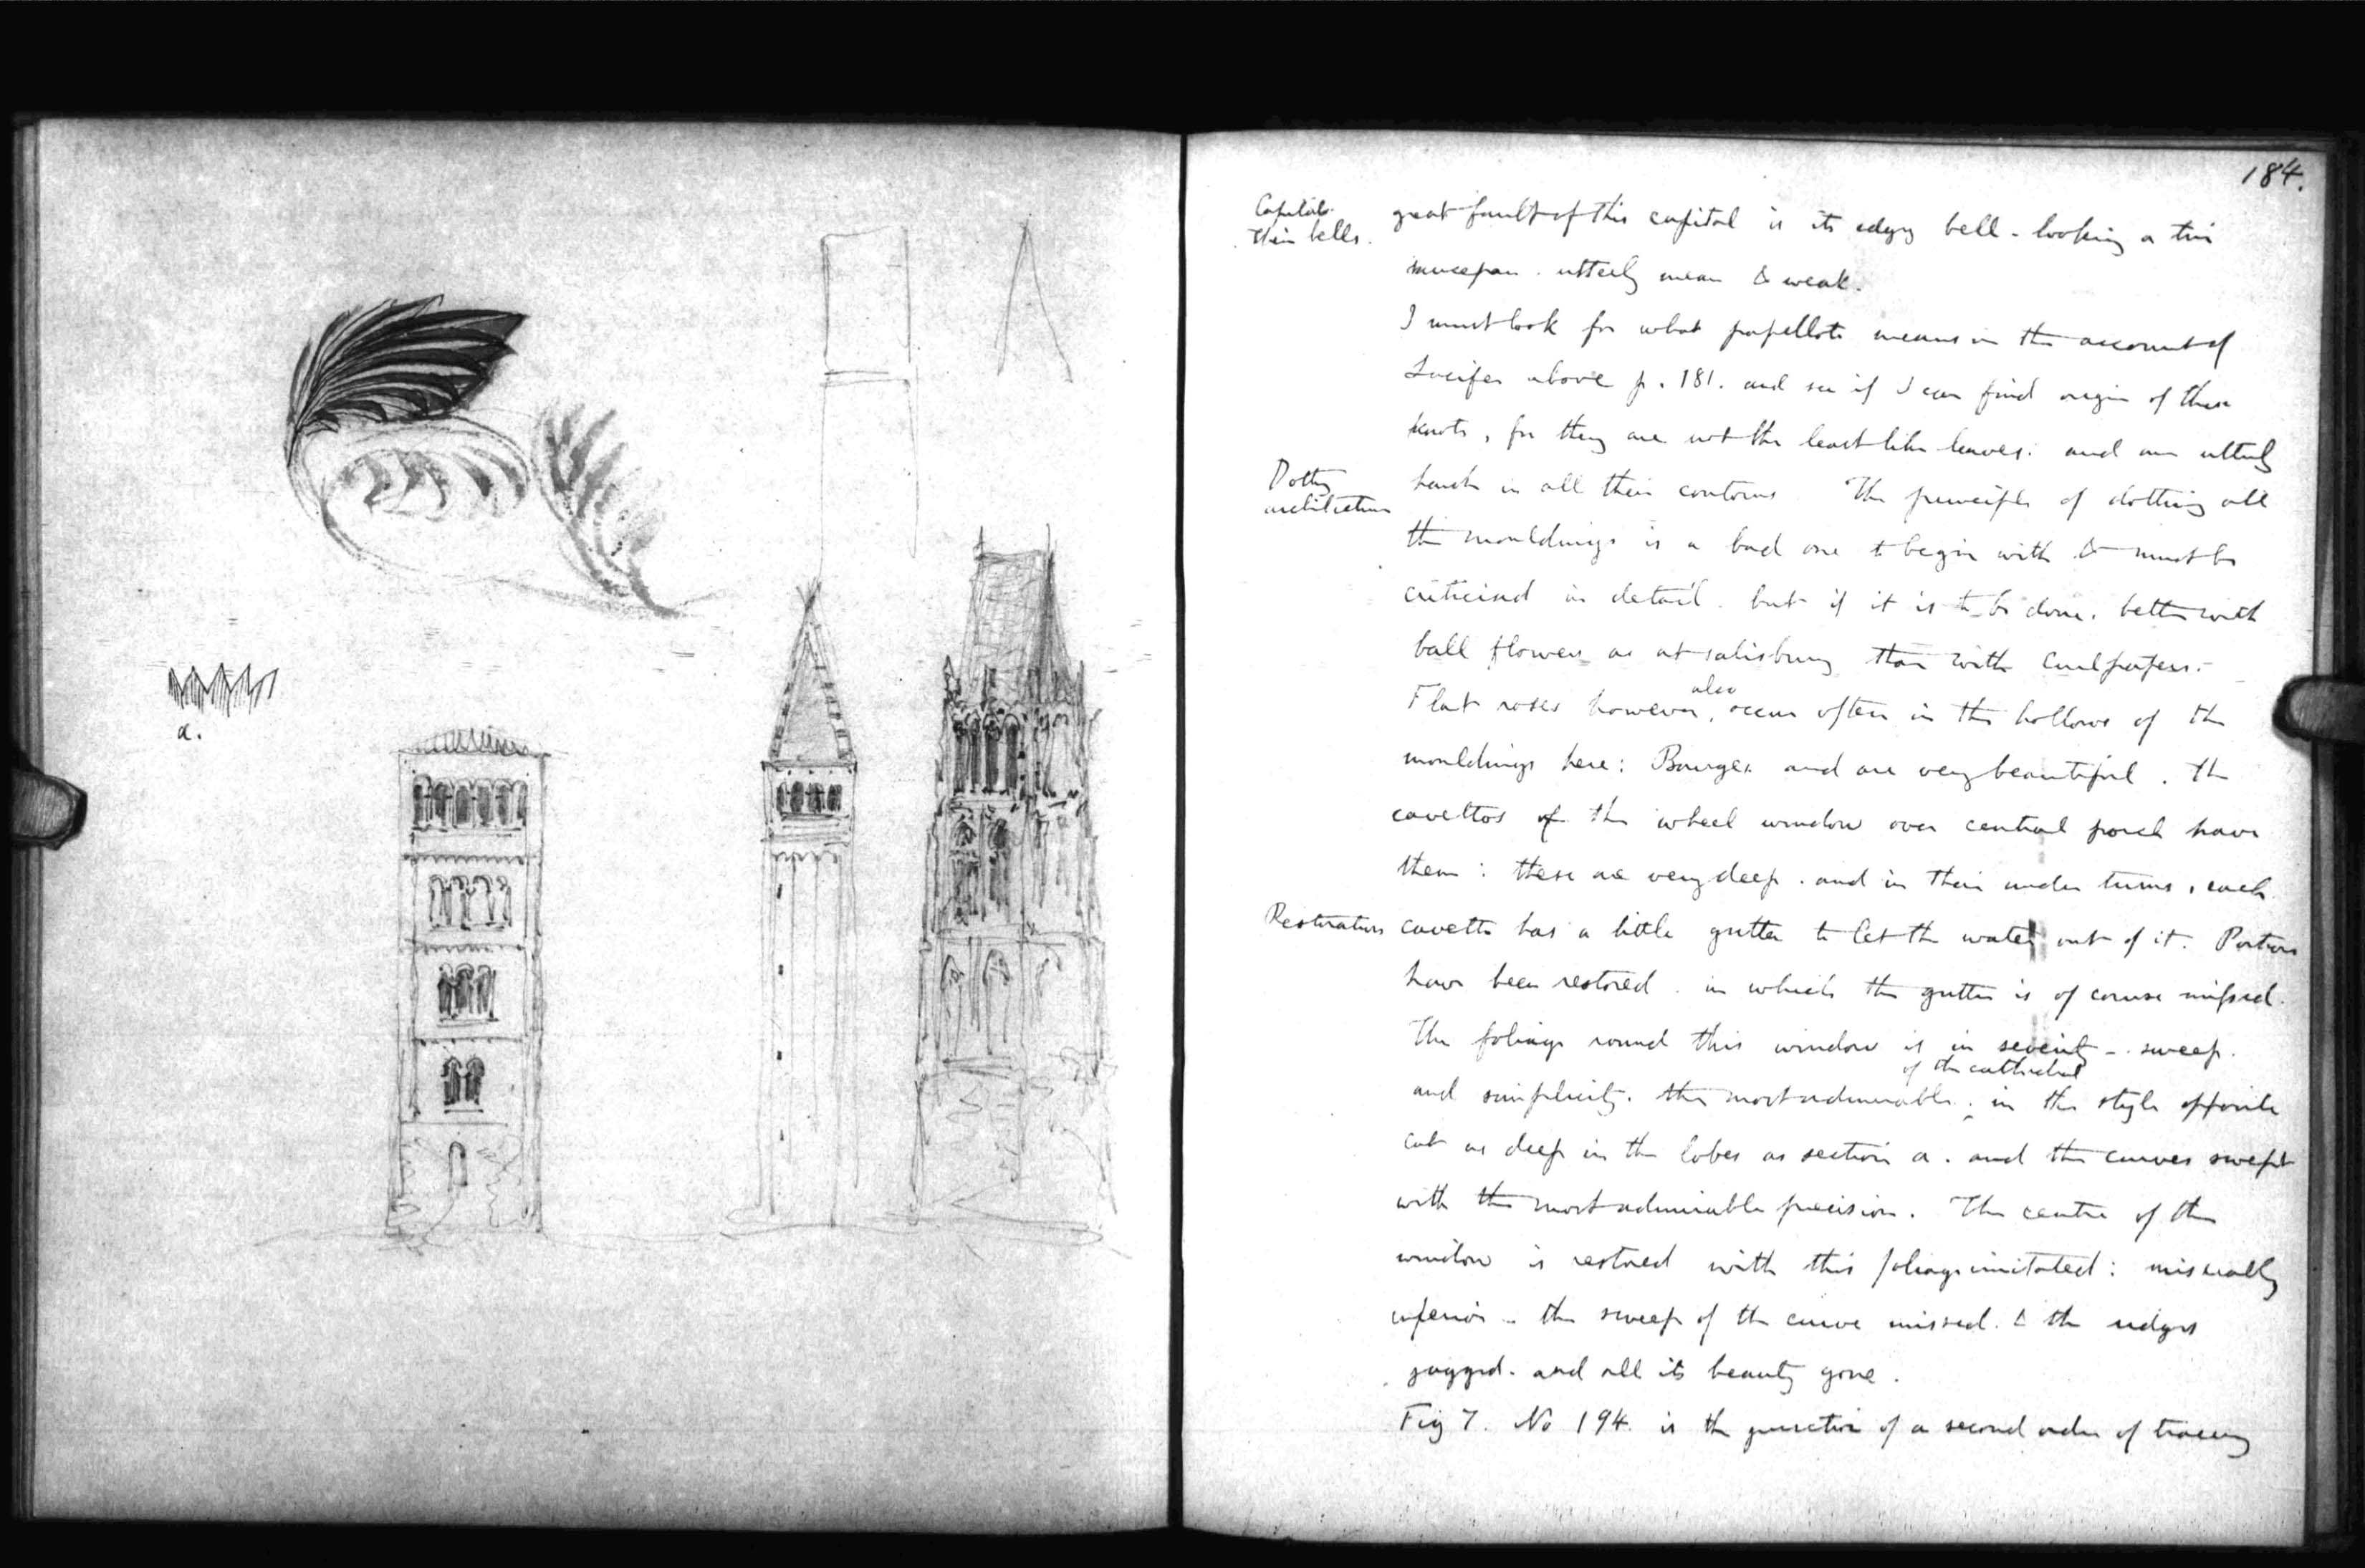 a.
184.
Capitals.
Thin bells.
great fault of this capital is its edgy bell - looking a tin
saucepan. utterly mean & weak.
I must look for what papillote means in the account of
Lucifer above p. 181. and see if I can find origin of these
knots, for they are not the least like leaves: and are utterly
Dotty
architecture
harsh in all their contours The principle of dotting all
the mouldings is a bad one to begin with & must be
criticised in detail. but if it is to be done. better with
ball flowers as at Salisbury than with curlpapers.-
also
Flat roses however, occur often in the hollows of the
mouldings here: Bourges. and are very beautiful. The
cavettos of the wheel window over central porch have
them: these are very deep. and in their under turns, each
Restoration
cavetto has a little gutter to let the water out of it. Portions
have been restored. in which the gutter is of course missed.
The foliage round this window is in severity -. sweep.
of the cathedral
and simplicity. the most admirable. in the style opposite
cut as deep in the lobes as section a. and the curves swept
with the most admirable precision. The centre of the
window is restored with this foliage imitated: miserably
inferior - the sweep of the curve missed. & the edges
jagged. and all its beauty gone.
Fig 7. No 194. is the junction of a second order of tracery